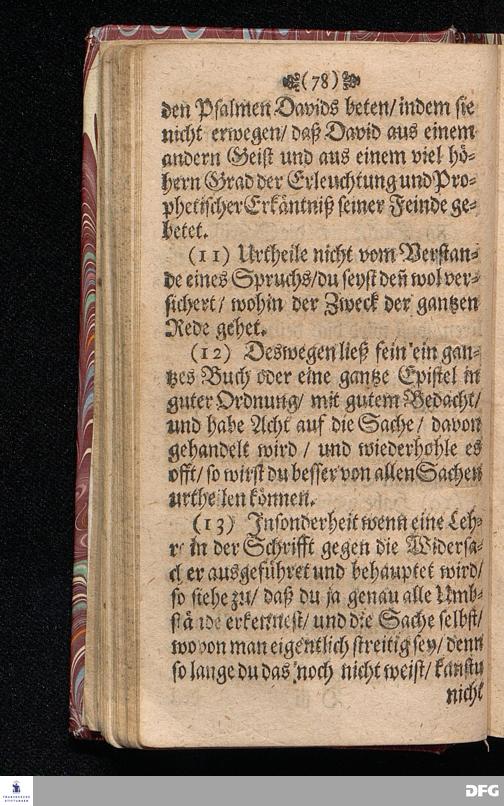 (78)
den Psalmen Davids beten/ indem sie
nicht erwegen/ daß David aus einem
andern Geist und aus einem viel hö-
hern Grad der Erleuchtung und Pro-
phetischer Erkäntniß seiner Feinde ge-
betet.
(11) Urtheile nicht vom Verstan-
de eines Spruchs/ du seyst deñ wol ver-
sichert/ wohin der Zweck der gantzen
Rede gehet.
(12) Deswegen ließ fein ein gan-
tzes Buch oder eine gantze Epistel in
guter Ordnung/ mit gutem Bedacht/
und habe Acht auf die Sache/ davon
gehandelt wird/ und wiederhohle es
offt/ so wirst du besser von allen Sachen
urtheilen können.
(13) Insonderheit wenn eine Leh-
r' in der Schrifft gegen die Widersa-
cher ausgeführet und behauptet wird/
so siehe zu/ daß du ja genau alle Umb-
stände erkennest/ und die Sache selbst/
wovon man eigentlich streitig sey/ denn
so lange du das noch nicht weist/ kanstu
nicht
FRANCKESCHE
STIFTUNGEN
DFG